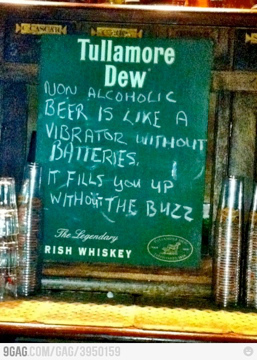 Tullamore
Dew
NON ALCOHOLIC
BEER IS LIKE A
VIBRATOR WITHOUT
BATTERIES.
IT FILLS YOU UP
WITHOUT THE BUZZ
The Legendary
RISH WHISKEY
9GAG.COM/GAG/3950159